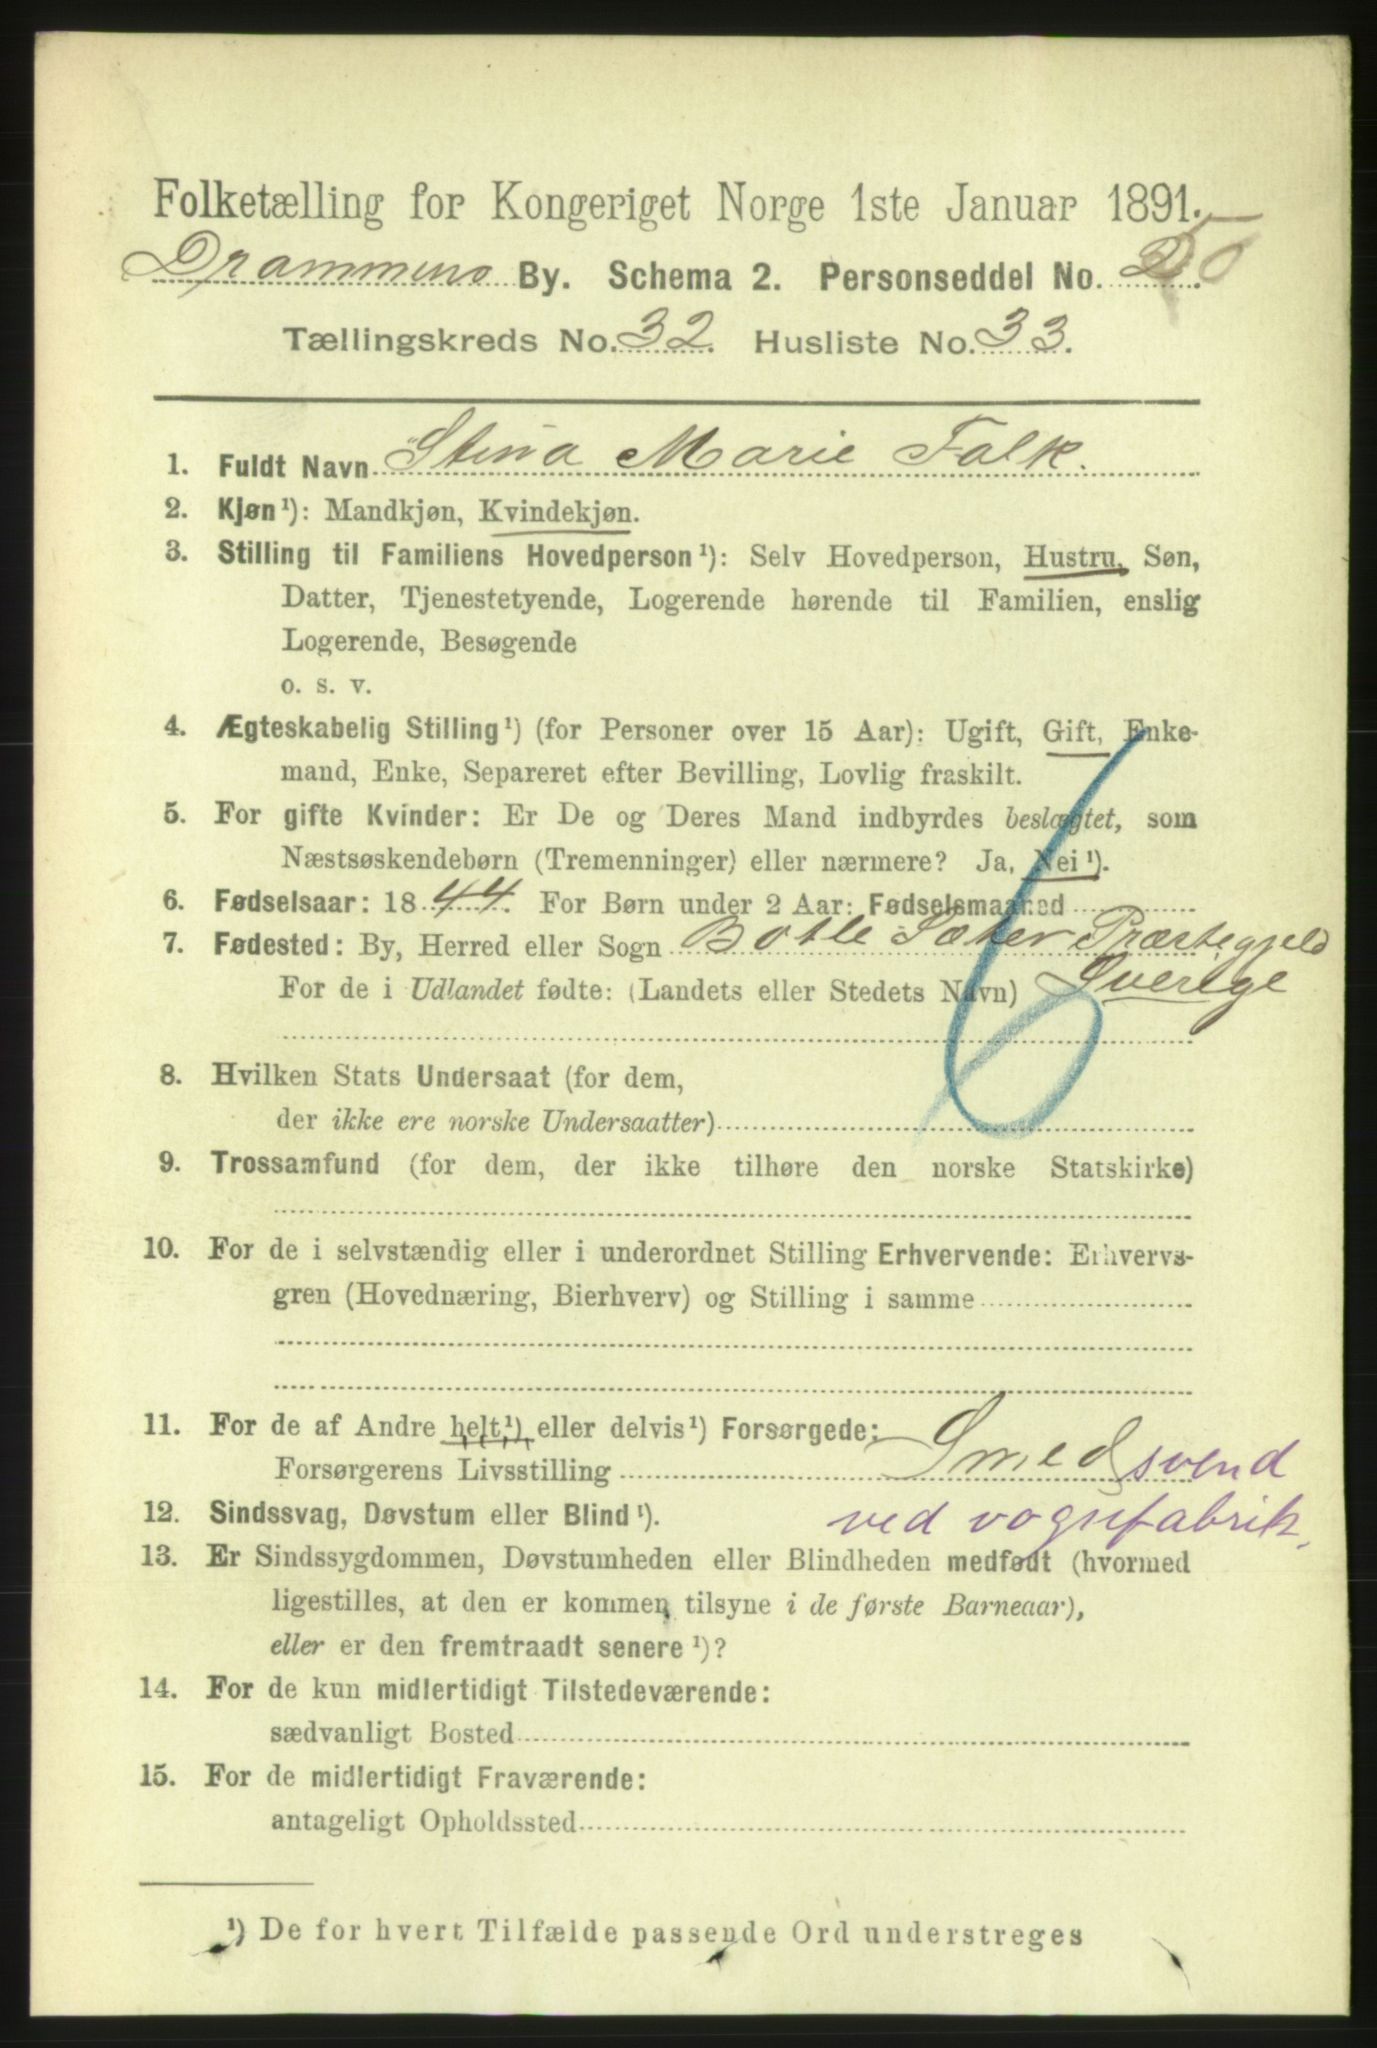 Folketælling for Kongeriget Norge 1ste Januar 1891.
Drammens By. Schema 2. Personseddel No.
Tællingskreds No. 32. Husliste No. 33.
1. Fuldt Navn Stina Marie Falk.
2. Kjøn ¹): Mandkjøn, Kvindekjøn.
3. Stilling til Familiens Hovedperson ¹): Selv Hovedperson, Hustru, Søn,
Datter, Tjenestetyende, Logerende hørende til Familien, enslig
Logerende, Besøgende
o. s. v.
4. Ægteskabelig Stilling ¹) (for Personer over 15 Aar): Ugift, Gift, Enke-
mand, Enke, Separeret efter Bevilling, Lovlig fraskilt.
5. For gifte Kvinder: Er De og Deres Mand indbyrdes beslægtet, som
Næstsøskendebørn (Tremenninger) eller nærmere? Ja, Nei ¹).
6. Fødselsaar: 1844. For Børn under 2 Aar: Fødselsmaaned
7. Fødested: By, Herred eller Sogn Sæter Præstegjeld
For de i Udlandet fødte: (Landets eller Stedets Navn) Sverige
8. Hvilken Stats Undersaat (for dem,
der ikke ere norske Undersaatter)
9. Trossamfund (for dem, der ikke tilhøre den norske Statskirke)
10. For de i selvstændig eller i underordnet Stilling Erhvervende: Erhvervs-
gren (Hovednæring, Bierhverv) og Stilling i samme
11. For de af Andre helt ¹) eller delvis ¹) Forsørgede:
Forsørgerens Livsstilling Smedsvend
12. Sindssvag, Døvstum eller Blind ¹). ved vognfabrik.
13. Er Sindssygdommen, Døvstumheden eller Blindheden medfødt (hvormed
ligestilles, at den er kommen tilsyne i de første Barneaar),
eller er den fremtraadt senere ¹)?
14. For de kun midlertidigt Tilstedeværende:
sædvanligt Bosted
15. For de midlertidigt Fraværende:
antageligt Opholdssted
¹) De for hvert Tilfælde passende Ord understreges